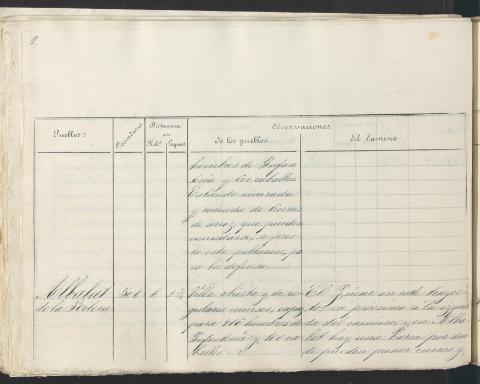 Pueblos
Vecindario
Distancia
en
Kils
Leguas
Observaciones
De los pueblos
Del Camino
hombres de Ynfan
tería y 100 caballos
Estando murada
y rodeada de tierras
de arroz, que pueden
inundarse, se pres-
de esta poblacion, pa
ra la defensa.
Albalat
de la Ribera
500
6
1
Villa abierta y de re-
gulares recursos, capaz
para 400 hombres de
Ynfantería y 100 ca
ballos
El Júcar en este
to va próximo a la izquier
da del camino, y en Alba
lat hay una barca por don
de pueden pasar carros y